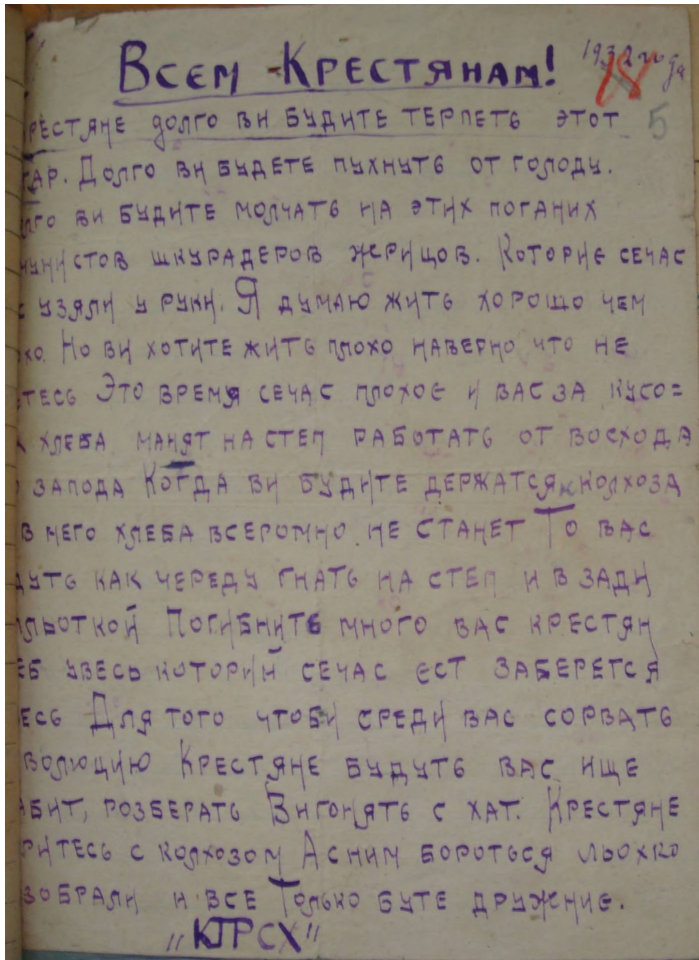 Всем Крестянам! 1932 года
18
рестяне долго ви будите терпеть этот 5
гар. Долго ви будете пухнуть от голоду.
лго ви будите молчать на этих поганих
мунистов шкурадеров жерицов. Которие сечас
с узяли у руки. Я думаю жить хорошо чем
охо. Но ви хотите жить плохо наверно что не
етесь Это время сечас плохое и вас за кусо=
к хлеба манят на степ работать от восхода
о запода Когда ви будите держатся колхоза
в него хлеба всеромно не станет То вас
дуть как череду гнать на степ и в зади
льоткой Погибните много вас крестян
еб увесь который сечас ест заберется
есь Для того чтоби среди вас сорвать
волюцию Крестяне будуть вас ище
абит, розберать Вигонять с хат. Крестяне
ритесь с колхозом А сним бороться льохко
зобрали и все Только буте дружние.
„КПРСХ"